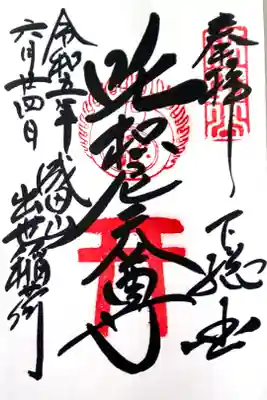 奉拝
下総国
吒枳尼天尊
令和五年
六月廿四日
成田山
出世稲荷